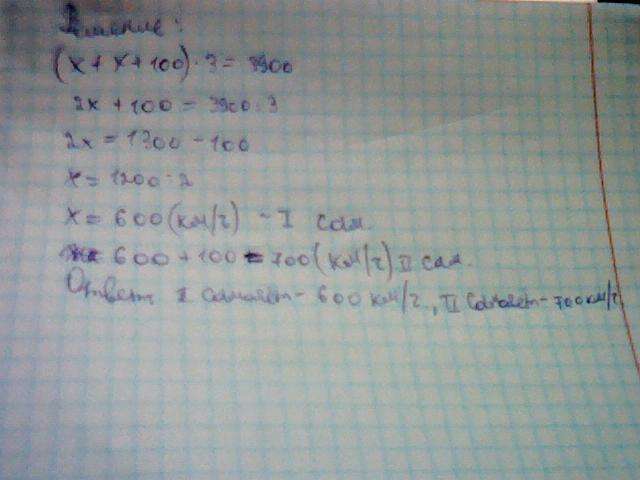 Решение:
(x + x + 100) · 3 = 3900
2x + 100 = 3900 : 3
2x = 1300 - 100
x = 1200 : 2
x = 600 (км/ч) - I сам.
600 + 100 = 700 (км/ч) II сам.
Ответ I самолет - 600 км/ч., II самолет - 700 км/ч.